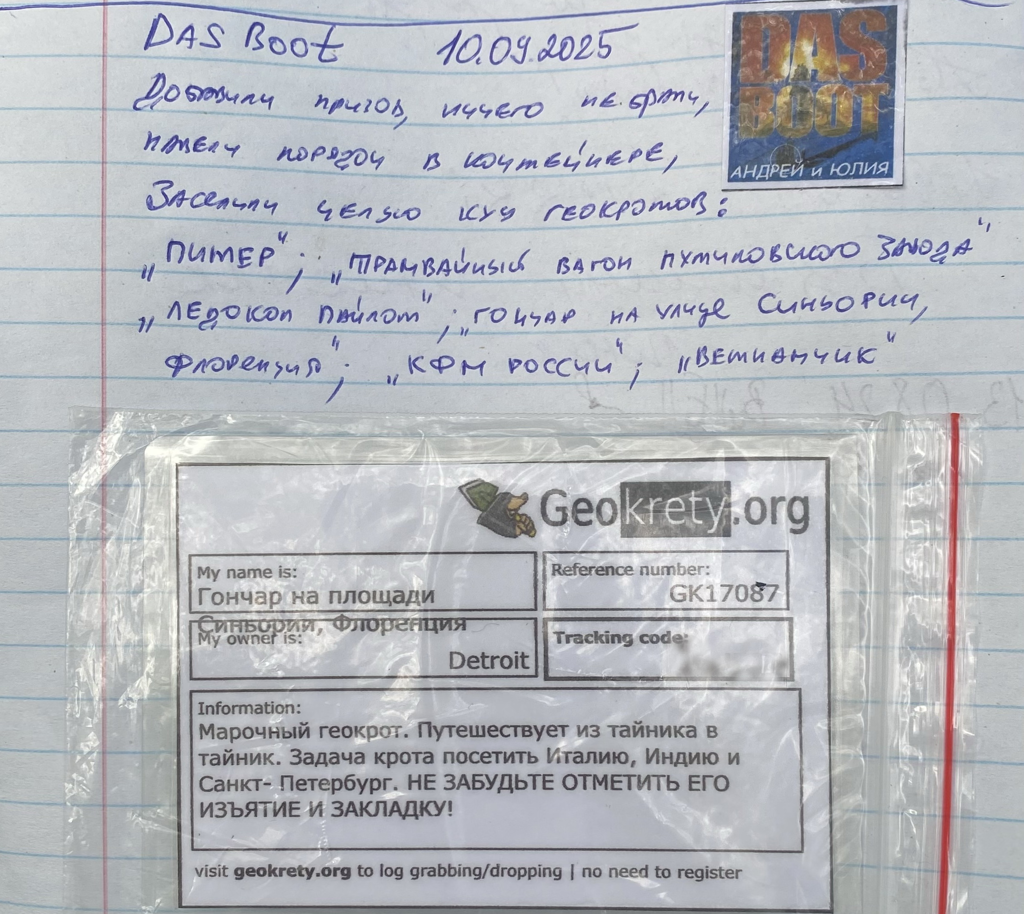 DAS BOOT 10.09.2025
DAS
BOOT
АНДРЕЙ и ЮЛИЯ
Добавили призов, ничего не брали,
навели порядок в контейнере,
Заселили целую кучу геокротов:
„ПИТЕР“; „ТРАМВАЙНЫЙ ВАГОН ПУТИЛОВСКОГО ЗАВОДА“
„ЛЕДОКОЛ ПАЙЛОТ“; „ГОНЧАР НА УЛИЦЕ СИНЬОРИИ,
ФЛОРЕНЦИЯ“; „КФМ РОССИИ“;
Geokrety.org
My name is:
Гончар на площади
Синьории, Флоренция
Reference number:
GK17087
My owner is:
Detroit
Tracking code:
Information:
Марочный геокрот. Путешествует из тайника в
тайник. Задача крота посетить Италию, Индию и
Санкт- Петербург. НЕ ЗАБУДЬТЕ ОТМЕТИТЬ ЕГО
ИЗЪЯТИЕ И ЗАКЛАДКУ!
visit geokrety.org to log grabbing/dropping | no need to register